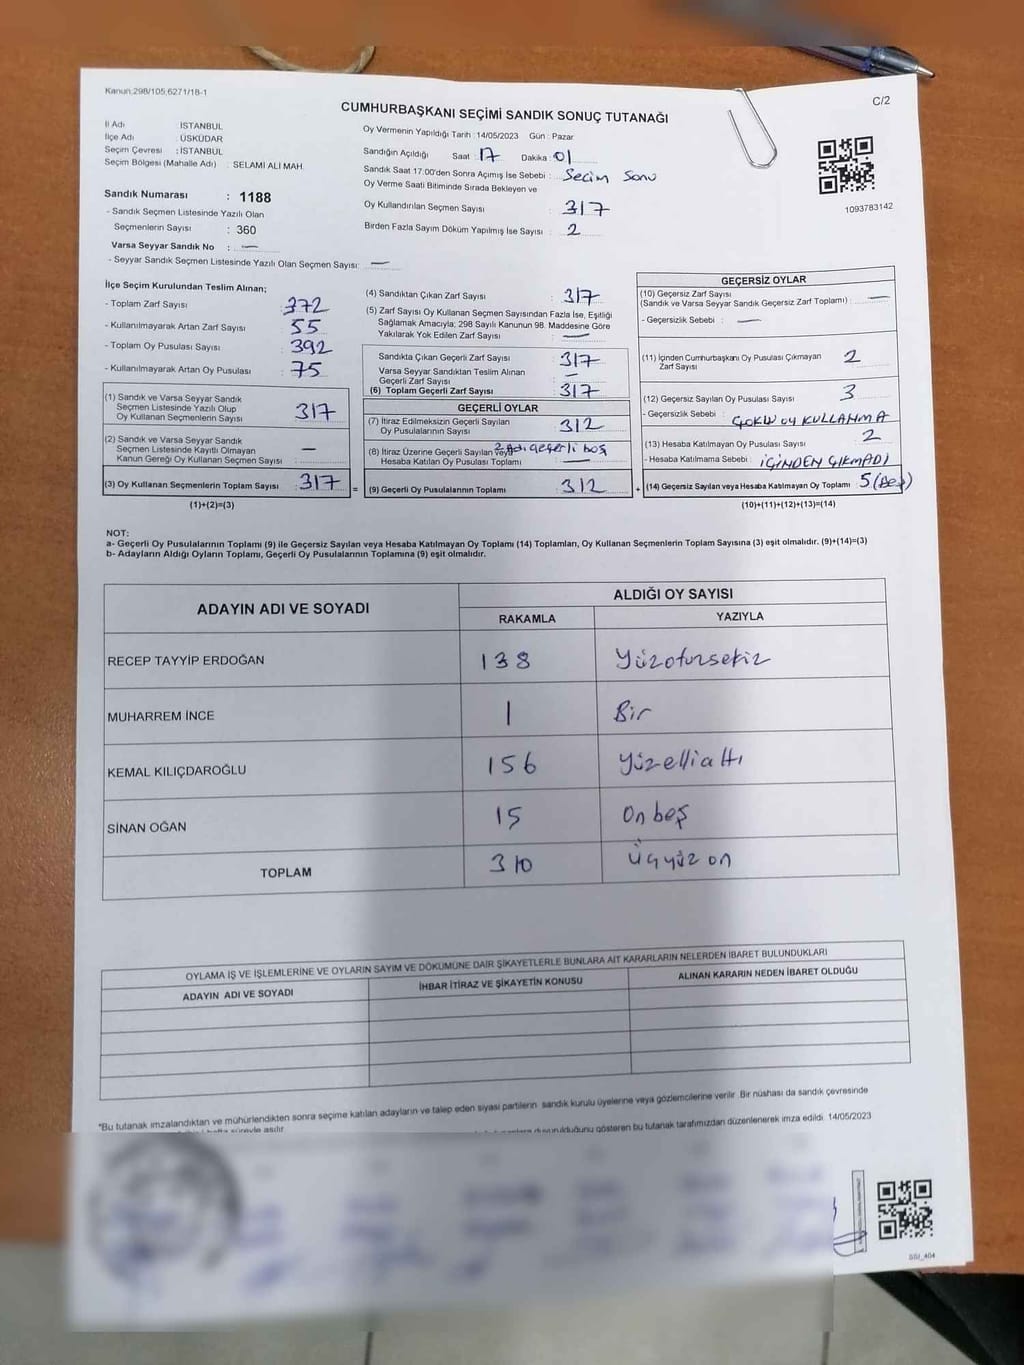 Kanun:298/105,6271/18-1
C/2
CUMHURBAŞKANI SEÇİMİ SANDIK SONUÇ TUTANAĞI
İl Adı : İSTANBUL
İlçe Adı : ÜSKÜDAR
Seçim Çevresi : İSTANBUL
Seçim Bölgesi (Mahalle Adı) : SELAMİ ALİ MAH.
Sandık Numarası : 1188
- Sandık Seçmen Listesinde Yazılı Olan
Seçmenlerin Sayısı : 360
Varsa Seyyar Sandık No : —
- Seyyar Sandık Seçmen Listesinde Yazılı Olan Seçmen Sayısı: —
Oy Vermenin Yapıldığı Tarih : 14/05/2023 Gün : Pazar
Sandığın Açıldığı Saat : 17 Dakika : 01
Sandık Saat 17.00'den Sonra Açımış İse Sebebi : Seçim Sonu
Oy Verme Saati Bitiminde Sırada Bekleyen ve
Oy Kullandırılan Seçmen Sayısı : 317
Birden Fazla Sayım Döküm Yapılmış İse Sayısı : 2
1093783142
İlçe Seçim Kurulundan Teslim Alınan;
- Toplam Zarf Sayısı : 372
- Kullanılmayarak Artan Zarf Sayısı : 55
- Toplam Oy Pusulası Sayısı : 392
- Kullanılmayarak Artan Oy Pusulası : 75
(1) Sandık ve Varsa Seyyar Sandık
Seçmen Listesinde Yazılı Olup
Oy Kullanan Seçmenlerin Sayısı : 317
(2) Sandık ve Varsa Seyyar Sandık
Seçmen Listesinde Kayıtlı Olmayan
Kanun Gereği Oy Kullanan Seçmen Sayısı : —
(3) Oy Kullanan Seçmenlerin Toplam Sayısı : 317
(1)+(2)=(3)
(4) Sandıktan Çıkan Zarf Sayısı : 317
(5) Zarf Sayısı Oy Kullanan Seçmen Sayısından Fazla İse, Eşitliği
Sağlamak Amacıyla; 298 Sayılı Kanunun 98. Maddesine Göre
Yakılarak Yok Edilen Zarf Sayısı : —
Sandıkta Çıkan Geçerli Zarf Sayısı : 317
Varsa Seyyar Sandıktan Teslim Alınan
Geçerli Zarf Sayısı : —
(6) Toplam Geçerli Zarf Sayısı : 317
GEÇERLİ OYLAR
(7) İtiraz Edilmeksizin Geçerli Sayılan
Oy Pusulalarının Sayısı : 312
2 Adı geçerli boş
(8) İtiraz Üzerine Geçerli Sayılan veya
Hesaba Katılan Oy Pusulası Toplamı : —
= (9) Geçerli Oy Pusulalarının Toplamı : 312
GEÇERSİZ OYLAR
(10) Geçersiz Zarf Sayısı
(Sandık ve Varsa Seyyar Sandık Geçersiz Zarf Toplamı) : —
- Geçersizlik Sebebi : —
(11) İçinden Cumhurbaşkanı Oy Pusulası Çıkmayan
Zarf Sayısı : 2
(12) Geçersiz Sayılan Oy Pusulası Sayısı : 3
- Geçersizlik Sebebi : ÇOKLU OY KULLANMA
(13) Hesaba Katılmayan Oy Pusulası Sayısı : 2
- Hesaba Katılmama Sebebi : İÇİNDEN ÇIKMADI
+ (14) Geçersiz Sayılan veya Hesaba Katılmayan Oy Toplamı : 5 (Beş)
(10)+(11)+(12)+(13)=(14)
NOT:
a- Geçerli Oy Pusulalarının Toplamı (9) ile Geçersiz Sayılan veya Hesaba Katılmayan Oy Toplamı (14) Toplamları, Oy Kullanan Seçmenlerin Toplam Sayısına (3) eşit olmalıdır. (9)+(14)=(3)
b- Adayların Aldığı Oyların Toplamı, Geçerli Oy Pusulalarının Toplamına (9) eşit olmalıdır.
ADAYIN ADI VE SOYADI ALDIĞI OY SAYISI
RAKAMLA YAZIYLA
RECEP TAYYİP ERDOĞAN 138 Yüzotuzsekiz
MUHARREM İNCE 1 Bir
KEMAL KILIÇDAROĞLU 156 Yüzellialtı
SİNAN OĞAN 15 On beş
TOPLAM 310 Üçyüz on
OYLAMA İŞ VE İŞLEMLERİNE VE OYLARIN SAYIM VE DÖKÜMÜNE DAİR ŞİKAYETLERLE BUNLARA AİT KARARLARIN NELERDEN İBARET BULUNDUKLARI
ADAYIN ADI VE SOYADI İHBAR İTİRAZ VE ŞİKAYETİN KONUSU ALINAN KARARIN NEDEN İBARET OLDUĞU
*Bu tutanak imzalandıktan ve mühürlendikten sonra seçime katılan adayların ve talep eden siyasi partilerin sandık kurulu üyelerine veya gözlemcilerine verilir. Bir nüshası da sandık çevresinde
hafta süreyle asılır.
duyurulduğunu gösteren bu tutanak tarafımızdan düzenlenerek imza edildi. 14/05/2023
SSI_404